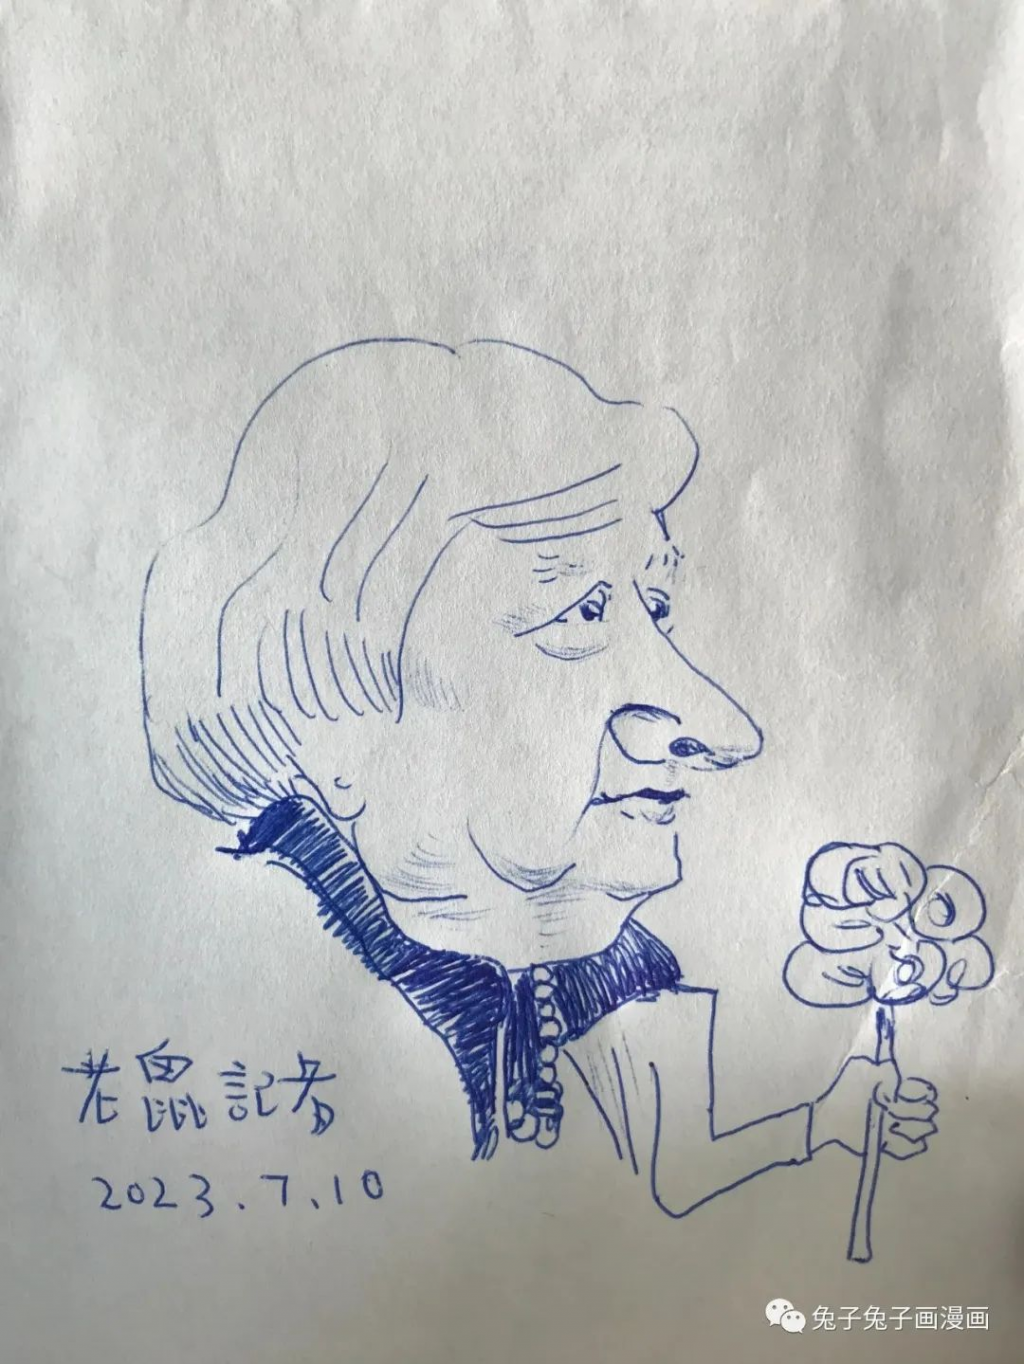 老鼠記者
2023.7.10
兔子兔子画漫画